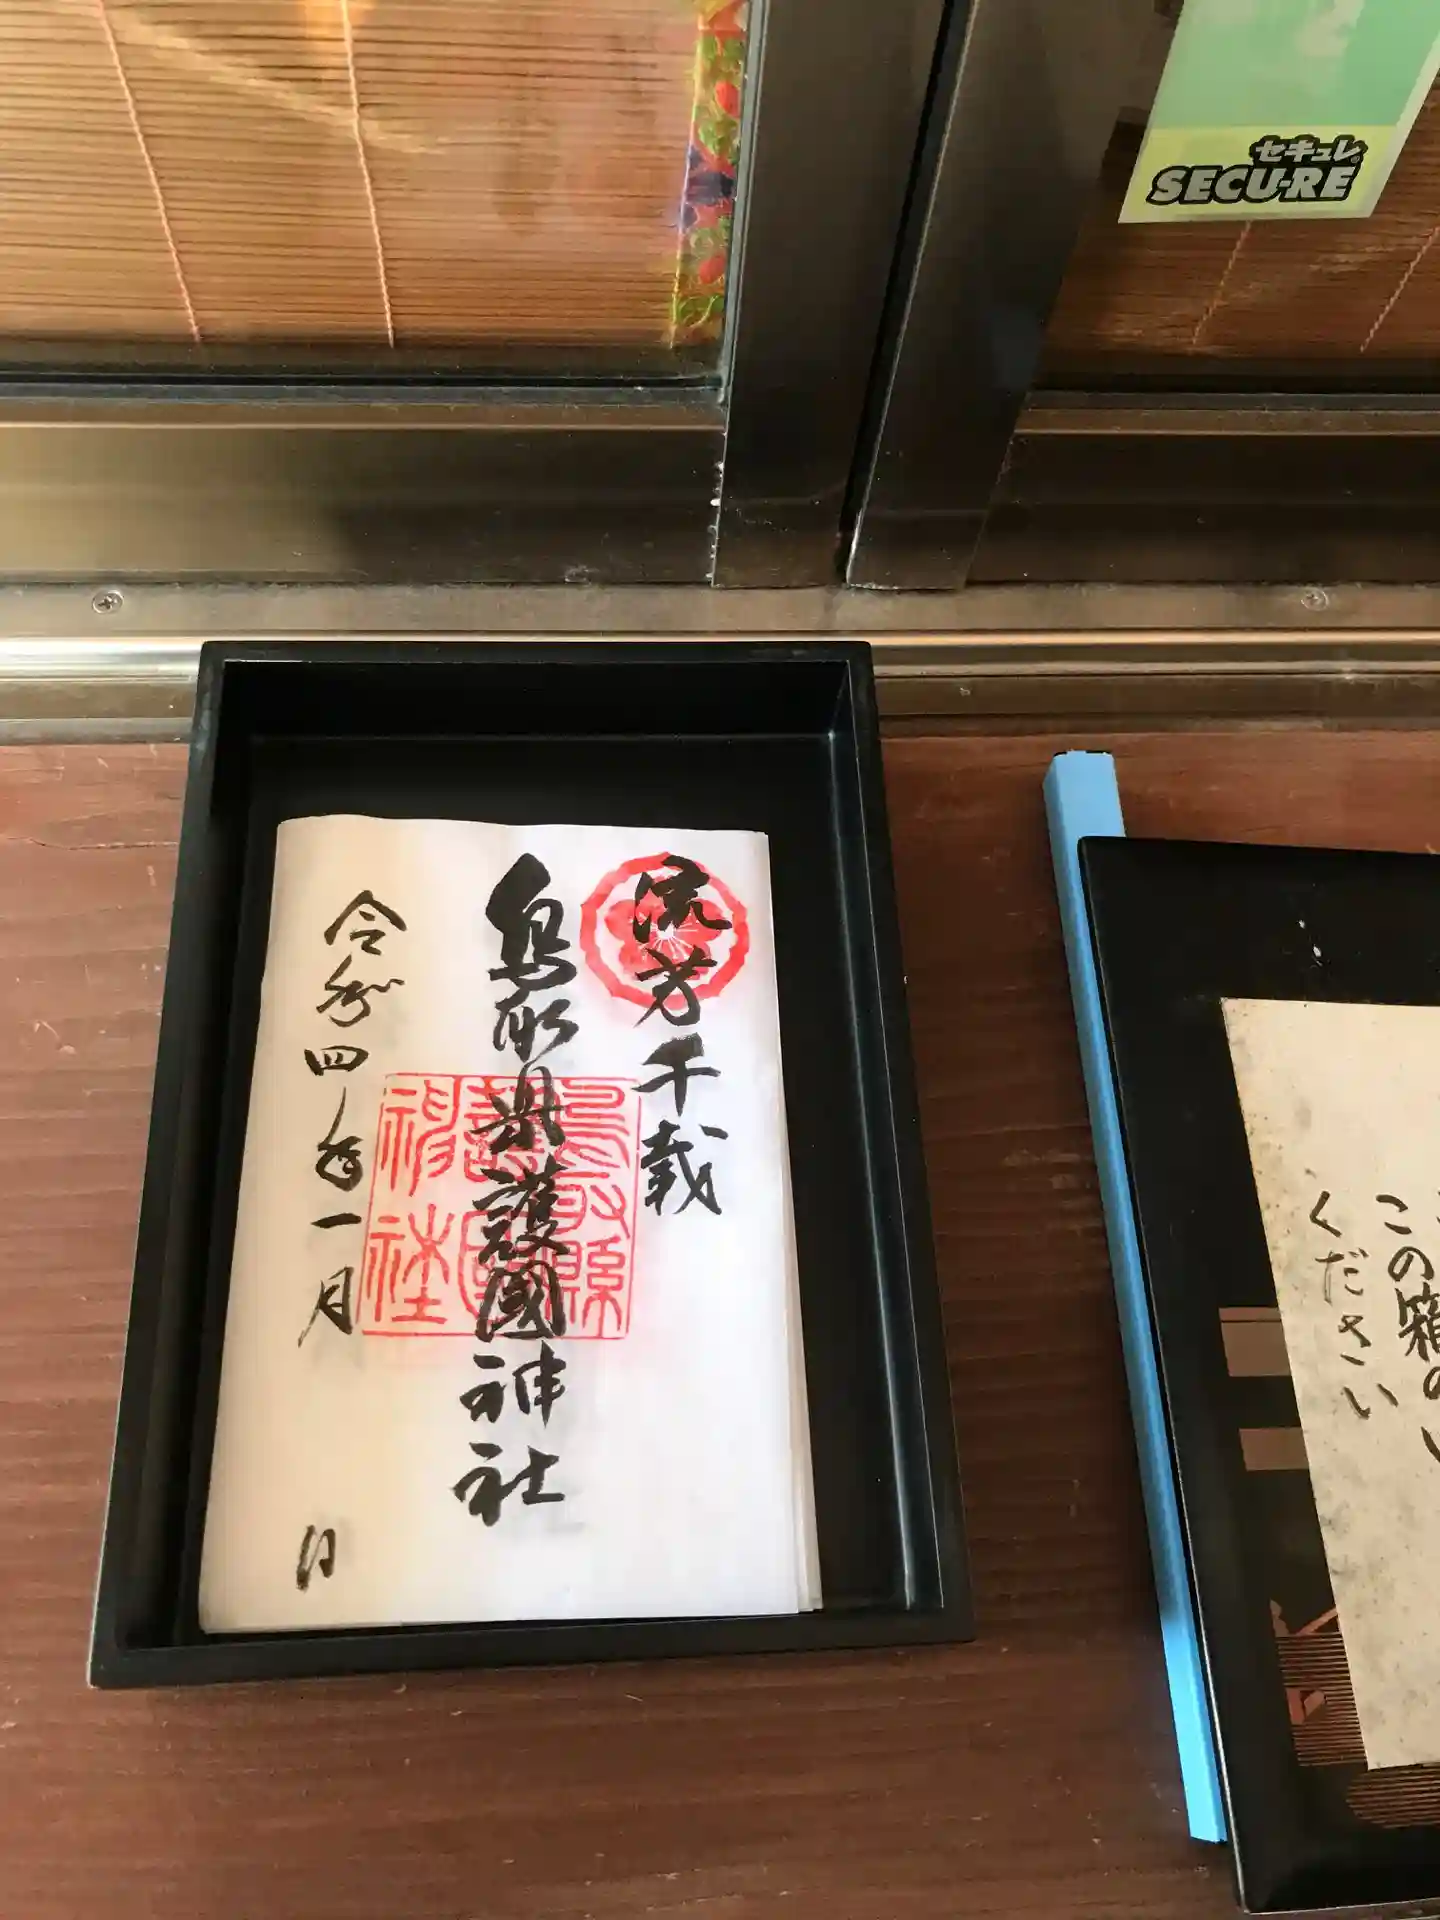 セキュレ
SECU-RE
流芳千載
鳥取県護國神社
鳥取縣
護國
神社
令和四年一月 日
この箱の
ください